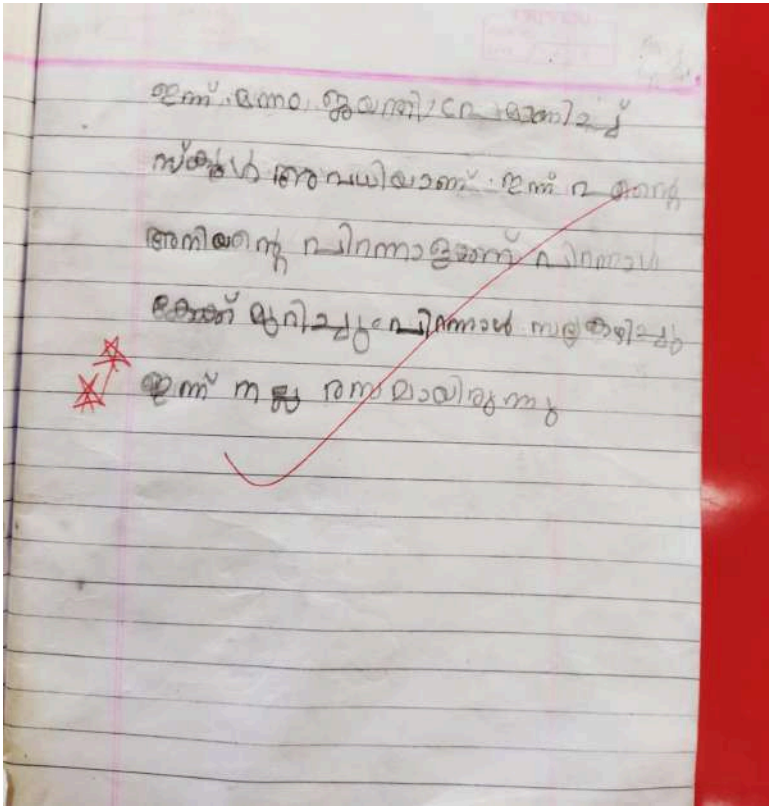 ഇന്ന് മന്നം ജയന്തി പ്രമാണിച്ച്
സ്കൂൾ അവധിയാണ്. ഇന്ന് എന്റെ
അനിയന്റെ പിറന്നാളാണ് പിറന്നാൾ
കേക്ക് മുറിച്ചു പിറന്നാൾ സദ്യ കഴിച്ചു
ഇന്ന് നല്ല രസമായിരുന്നു